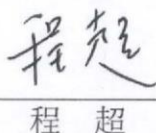 程超
程 超